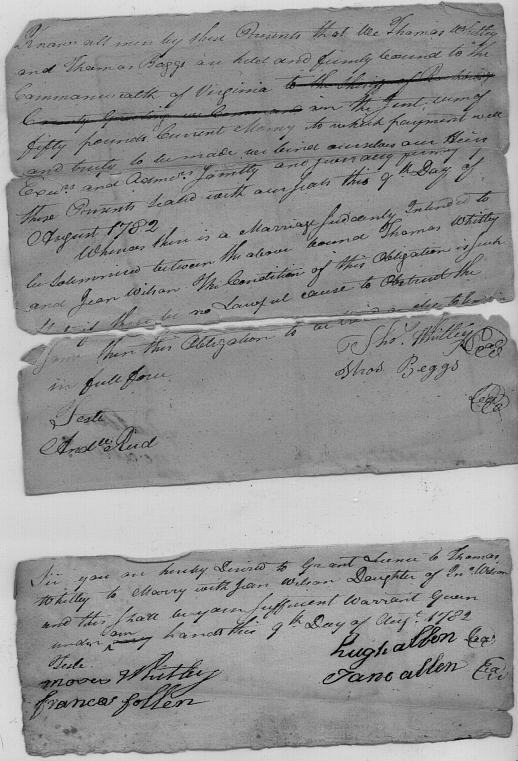 Know all men by these Presents that We Thomas Whitley
and Thomas Beggs are held and firmly bound to the
Commonwealth of Virginia to the
County am the Just sum of
fifty pounds Current Money to which payment well
and truly to be made we bind ourselves our Heirs
Exurs and Admors Jointly and firmly
these Presents Seald with our Seals this 9th Day of
August 1782
Whereas there is a Marriage Suddenly Intended to
be Solemnized between the above bound Thomas Whitley
and Jean Wilson The Condition of this Obligation is such
that if there be no Lawful cause to Obstruct the
Same then this Obligation to be Void or else to
in full force
Thos Whitley Seal
Thos Beggs
Seal
Teste
Andw Reid
Sir you are hereby Desired to Grant Licence to Thomas
Whitley to Marry with Jean Wilson Daughter of Jno Wilson
and this Shall be your Sufficient Warrant Given
under our hands this 9th Day of Augt 1782
Teste
hugh allen Seal
moses Whitley
Jane allen Seal
frances follen